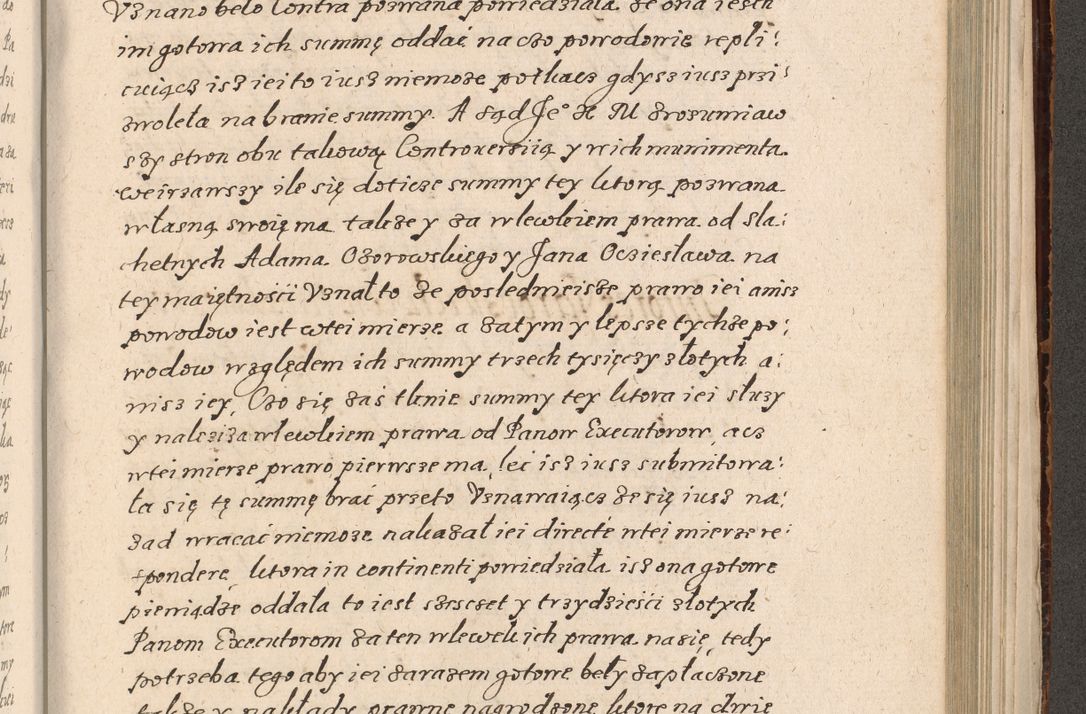 Uznano beło Contra pozwana powiedziała że ona iesth
im gotowa ich summę oddać na czo powodowie repli:
cuiącz isz ieito iusz niemoże potkacz gdysz iusz przi:
zwoleła na branie summy. A sąd Je° K M zrozumiaw
szy stron obu takową Controversiią y wich munimenta
weirzawszy ile się doticze summy tey ktorą pozwana
własną swoię ma także y za wlewkiem prawa od sla:
chetnych Adama Ożorowskiego y Jana Oczieslawa na
tey maiętności Uznał to że poslednieisze prawo iei anisz
powodow iest wtei mierze a zatym y lepsze tychże po:
wodow względem ich summy trzech tysięczy złotych a:
nisz iey, Czo się zaś tknie summy tey ktora iei służy
y należi za wlewkiem prawa od Panow Executorow, acz
wtei mierze prawo pierwsze ma, leć isz iusz submitowa:
ła się tę summę brać przeto Uznawaiącz że się iusz na:
zad wracać niemoże nakazał iei directé wtei mierze re:
spondere, ktora in continenti powiedziała isz ona gotowe
pieniądze oddała to iest szescset y trzydzieści złotych
Panom Executorom za ten wlewek ich prawa na się, tedy
potrzeba tego aby iei zarazem gotowe beły zapłaczone
także y nakłady prawne nagrodzone ktore na dwie